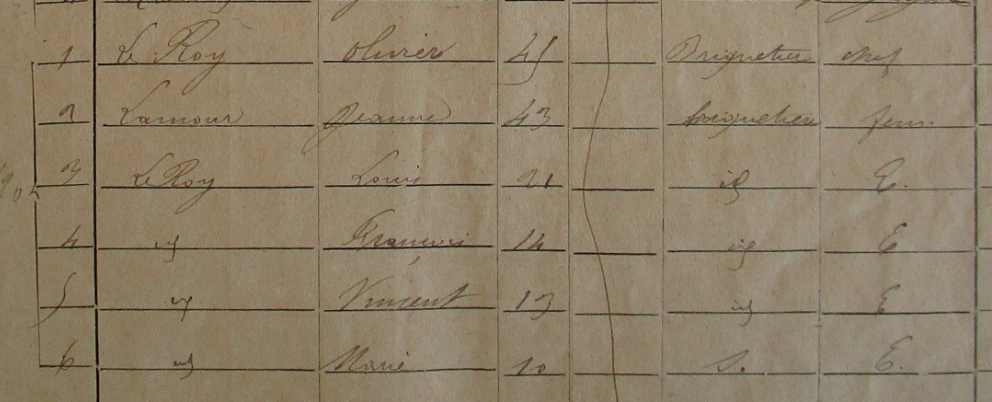 1 Le Roy Olivier 45 Briquetier chef
2 Lamour Jeanne 43 briquetier fem.
3 Le Roy Louis 21 id E.
4 id François 14 id E
5 id Vincent 13 id E
6 id Marie 10 S. E.